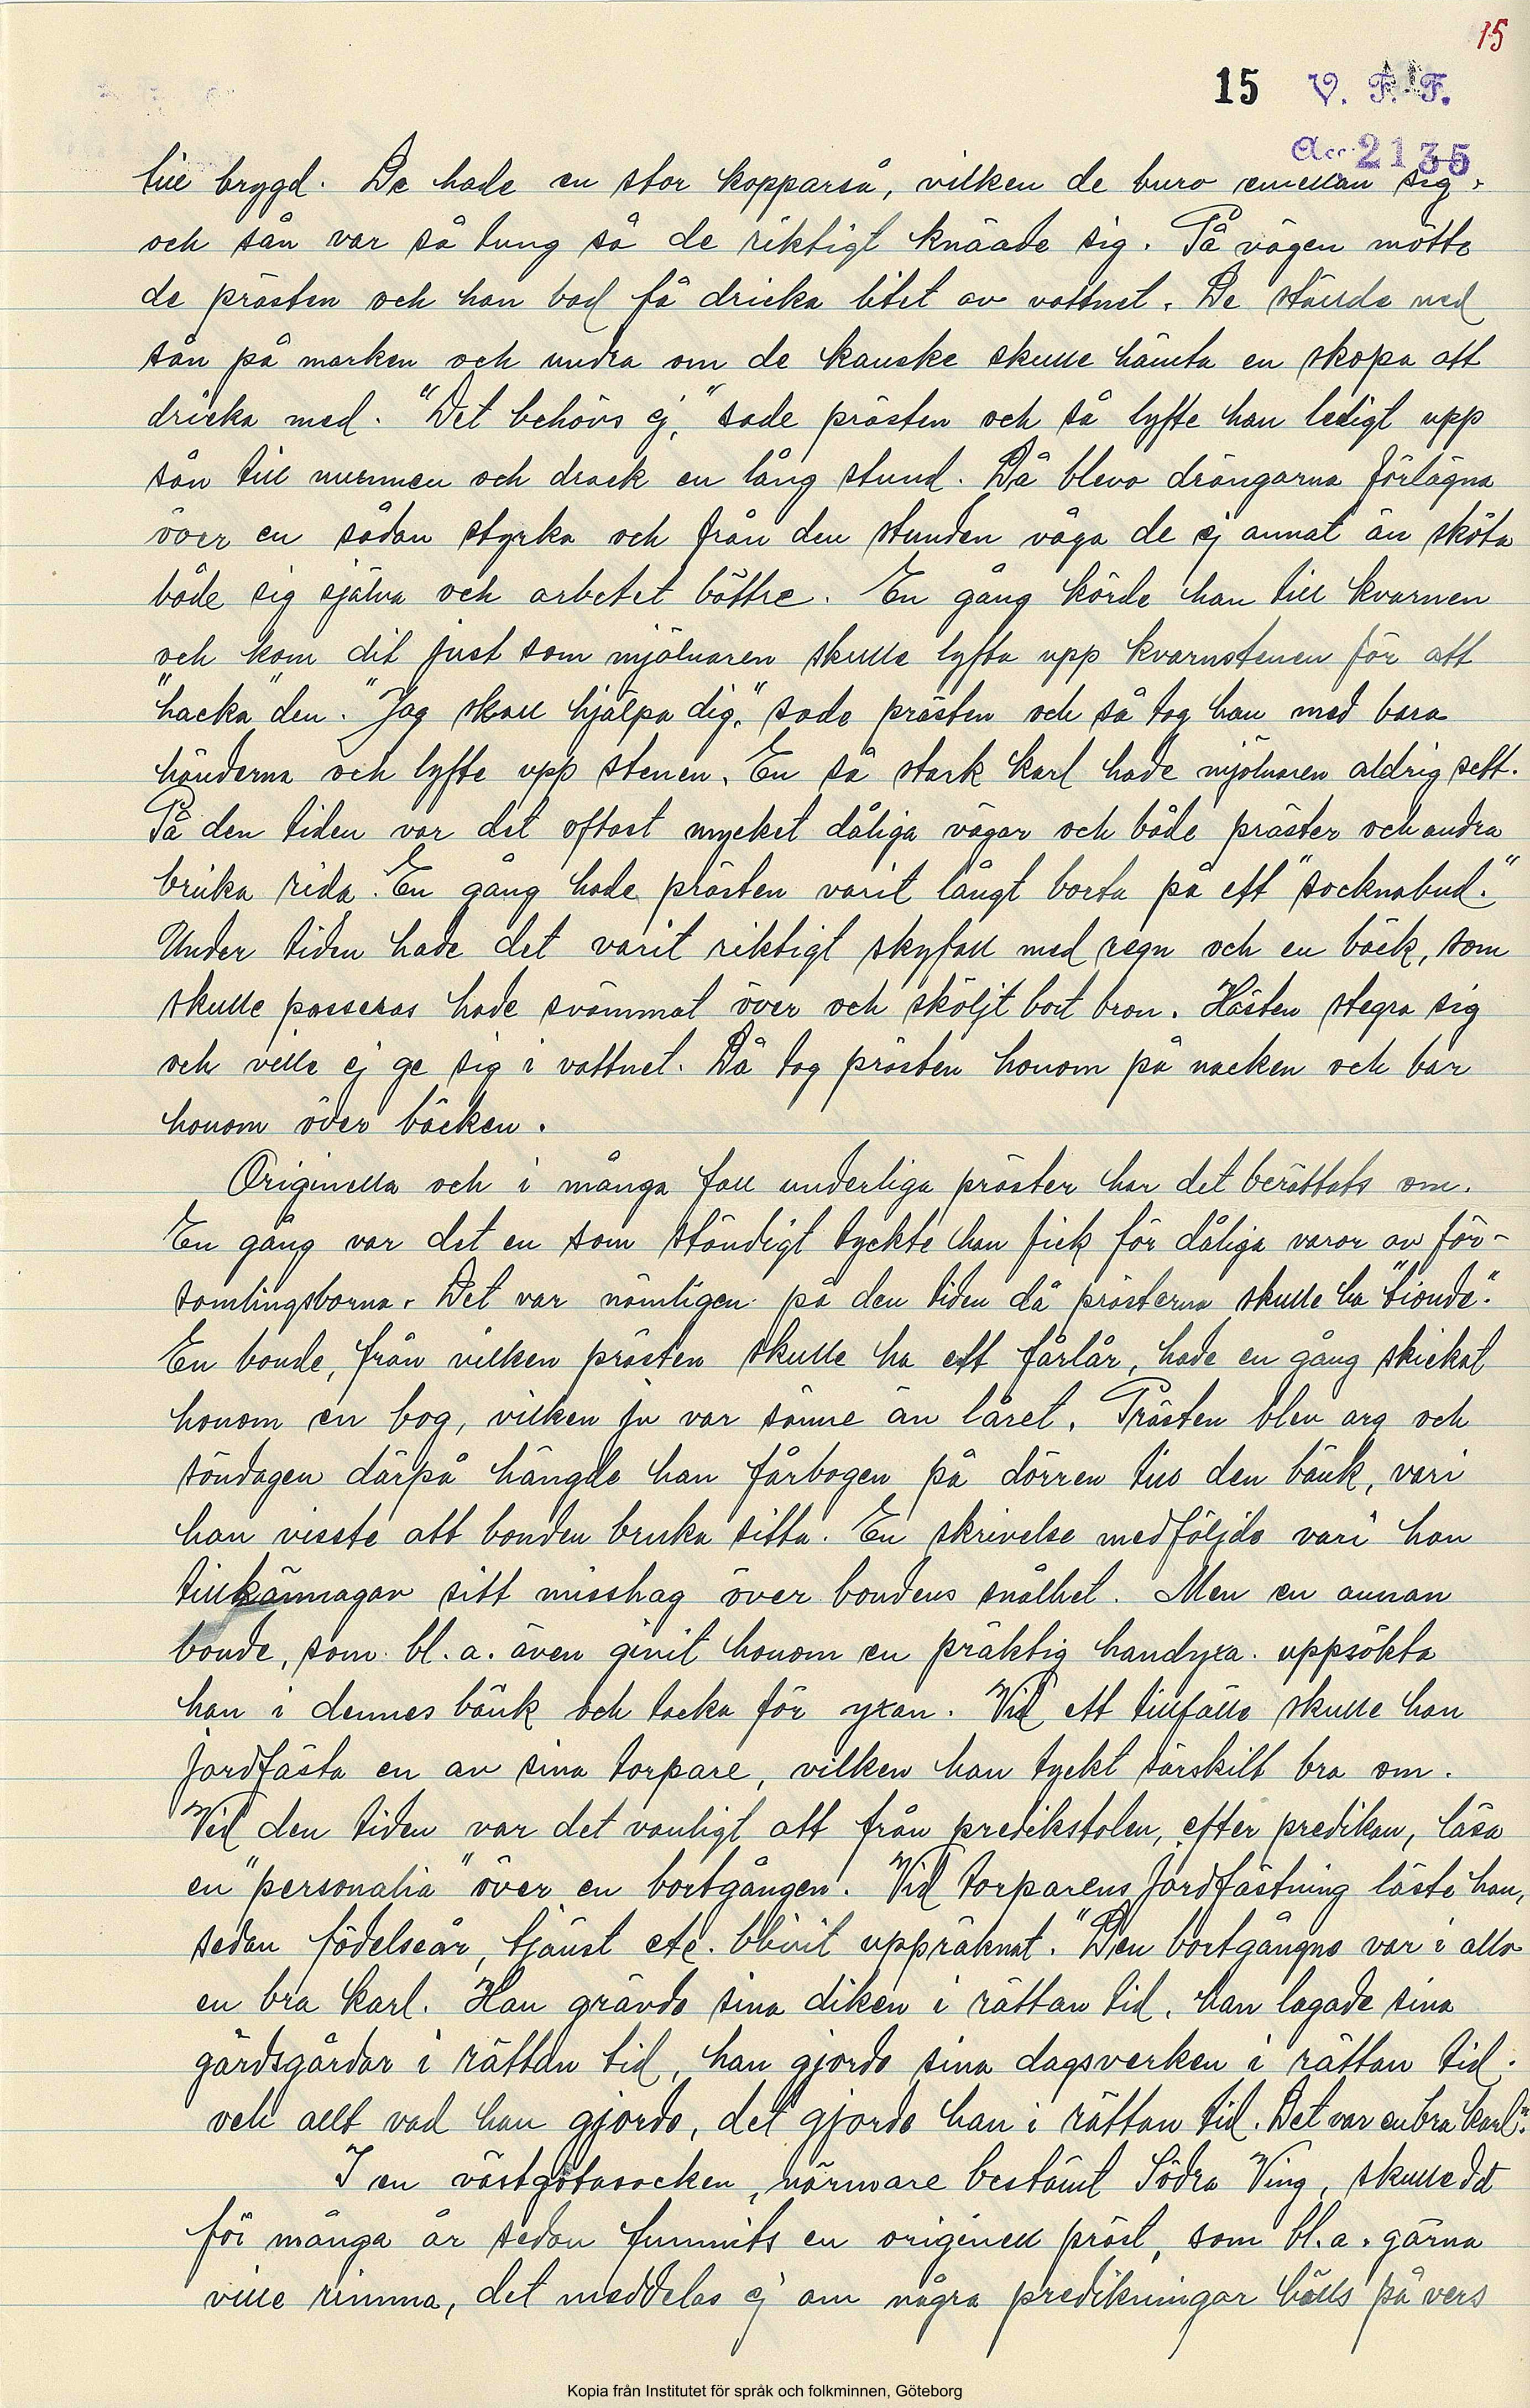 15
15 V. F. F.
Acc. 2135
till brygd. De hade en stor kopparså, vilken de buro emellan sig,
och sån var så tung så de riktigt knäade sig. På vägen mötte
de prästen och han bad få dricka litet av vattnet. De ställde ned
sån på marken och undra om de kanske skulle hämta en skopa att
dricka med. "Det behövs ej," sade prästen och så lyfte han ledigt upp
sån till munnen och drack en lång stund. Då blevo drängarna förlägna
över en sådan styrka och från den stunden våga de ej annat än sköta
både sig själva och arbetet bättre. En gång körde han till kvarnen
och kom dit just som mjölnaren skulle lyfta upp kvarnstenen för att
"hacka" den. "Jag skall hjälpa dig," sade prästen och så tog han med bara
händerna och lyfte upp stenen. En så stark karl hade mjölnaren aldrig sett.
På den tiden var det oftast mycket dåliga vägar och både präster och andra
bruka rida. En gång hade prästen varit långt borta på ett "socknabud."
Under tiden hade det varit riktigt skyfall med regn och en bäck, som
skulle passeras hade svämmat över och sköljt bort bron. Hästen stegra sig
och ville ej ge sig i vattnet. Då tog prästen honom på nacken och bar
honom över bäcken.
Originella och i många fall underliga präster har det berättats om.
En gång var det en som ständigt tyckte han fick för dåliga varor av för-
samlingsborna. Det var nämligen på den tiden då prästerna skulle ha "tionde".
En bonde, från vilken prästen skulle ha ett fårlår, hade en gång skickat
honom en bog, vilken ju var sämre än låret. Prästen blev arg och
söndagen därpå hängde han fårbogen på dörren till den bänk, vari
han visste att bonden bruka sitta. En skrivelse medföljde vari han
tillkännagav sitt misshag över bondens snålhet. Men en annan
bonde, som bl. a. även givit honom en präktig handyxa. uppsökte
han i dennes bänk och tacka för yxan. Vid ett tillfälle skulle han
jordfästa en av sina torpare, vilken han tyckt särskilt bra om.
Vid den tiden var det vanligt att från predikstolen, efter predikan, läsa
en "personalia" över en bortgången. Vid torparens jordfästning läste han,
sedan födelseår, tjänst etc. blivit uppräknat. "Den bortgångne var i allo
en bra karl. Han grävde sina diken i rättan tid, han lagade sina
gärdsgårdar i rättan tid, han gjorde sina dagsverken i rättan tid.
och allt vad han gjorde, det gjorde han i rättan tid. Det var en bra karl".
I en västgötasocken, närmare bestämt Södra Ving, skulle det
för många år sedan funnits en originell präst, som bl. a. gärna
ville rimma, det meddelas ej om några predikningar hölls på vers
Kopia från Institutet för språk och folkminnen, Göteborg